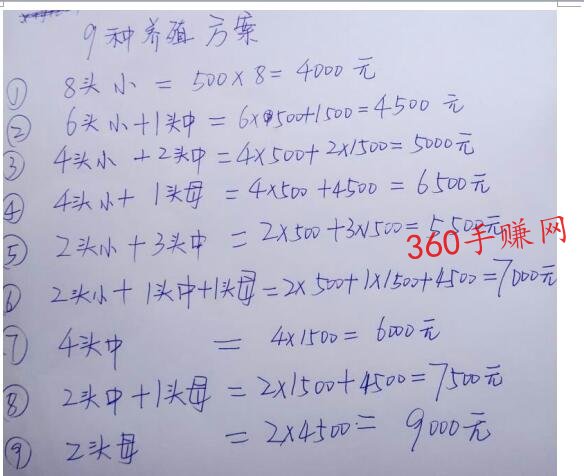 9种养殖方案
① 8头小 = 500×8 = 4000元
② 6头小+1头中 = 6×500+1500=4500元
③ 4头小+2头中=4×500+2×1500=5000元
④ 4头小+1头母 = 4×500+4500 = 6500元
⑤ 2头小+3头中 = 2×500+3×1500=5500元
360手赚网
⑥ 2头小+1头中+1头母=2×500+1×1500+4500=7000元
⑦ 4头中 = 4×1500= 6000元
⑧ 2头中+1头母 = 2×1500+4500=7500元
⑨ 2头母 = 2×4500= 9000元